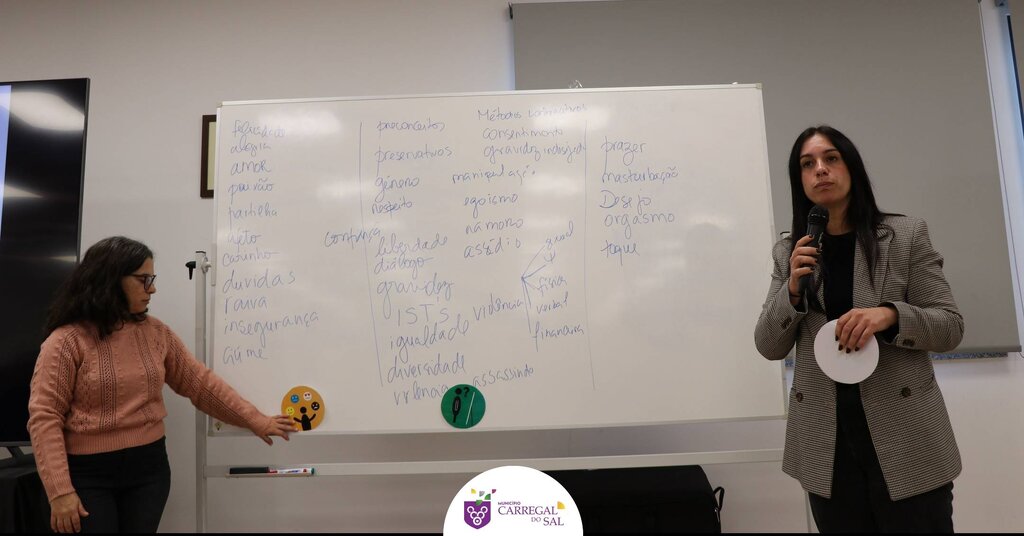 felicidade
alegria
amor
paixão
partilha
afeto
carinho
duvidas
raiva
insegurança
ciúme
preconceitos
preservativos
género
respeito
confiança
liberdade
diálogo
gravidez
ISTS
igualdade
diversidade
violencia
Métodos
consentimento
gravidez indesejada
manipulação
egoismo
namoro
assédio
violência
física
verbal
financeira
assassinio
prazer
masturbação
Desejo
orgasmo
toque
MUNICÍPIO
CARREGAL
DO SAL